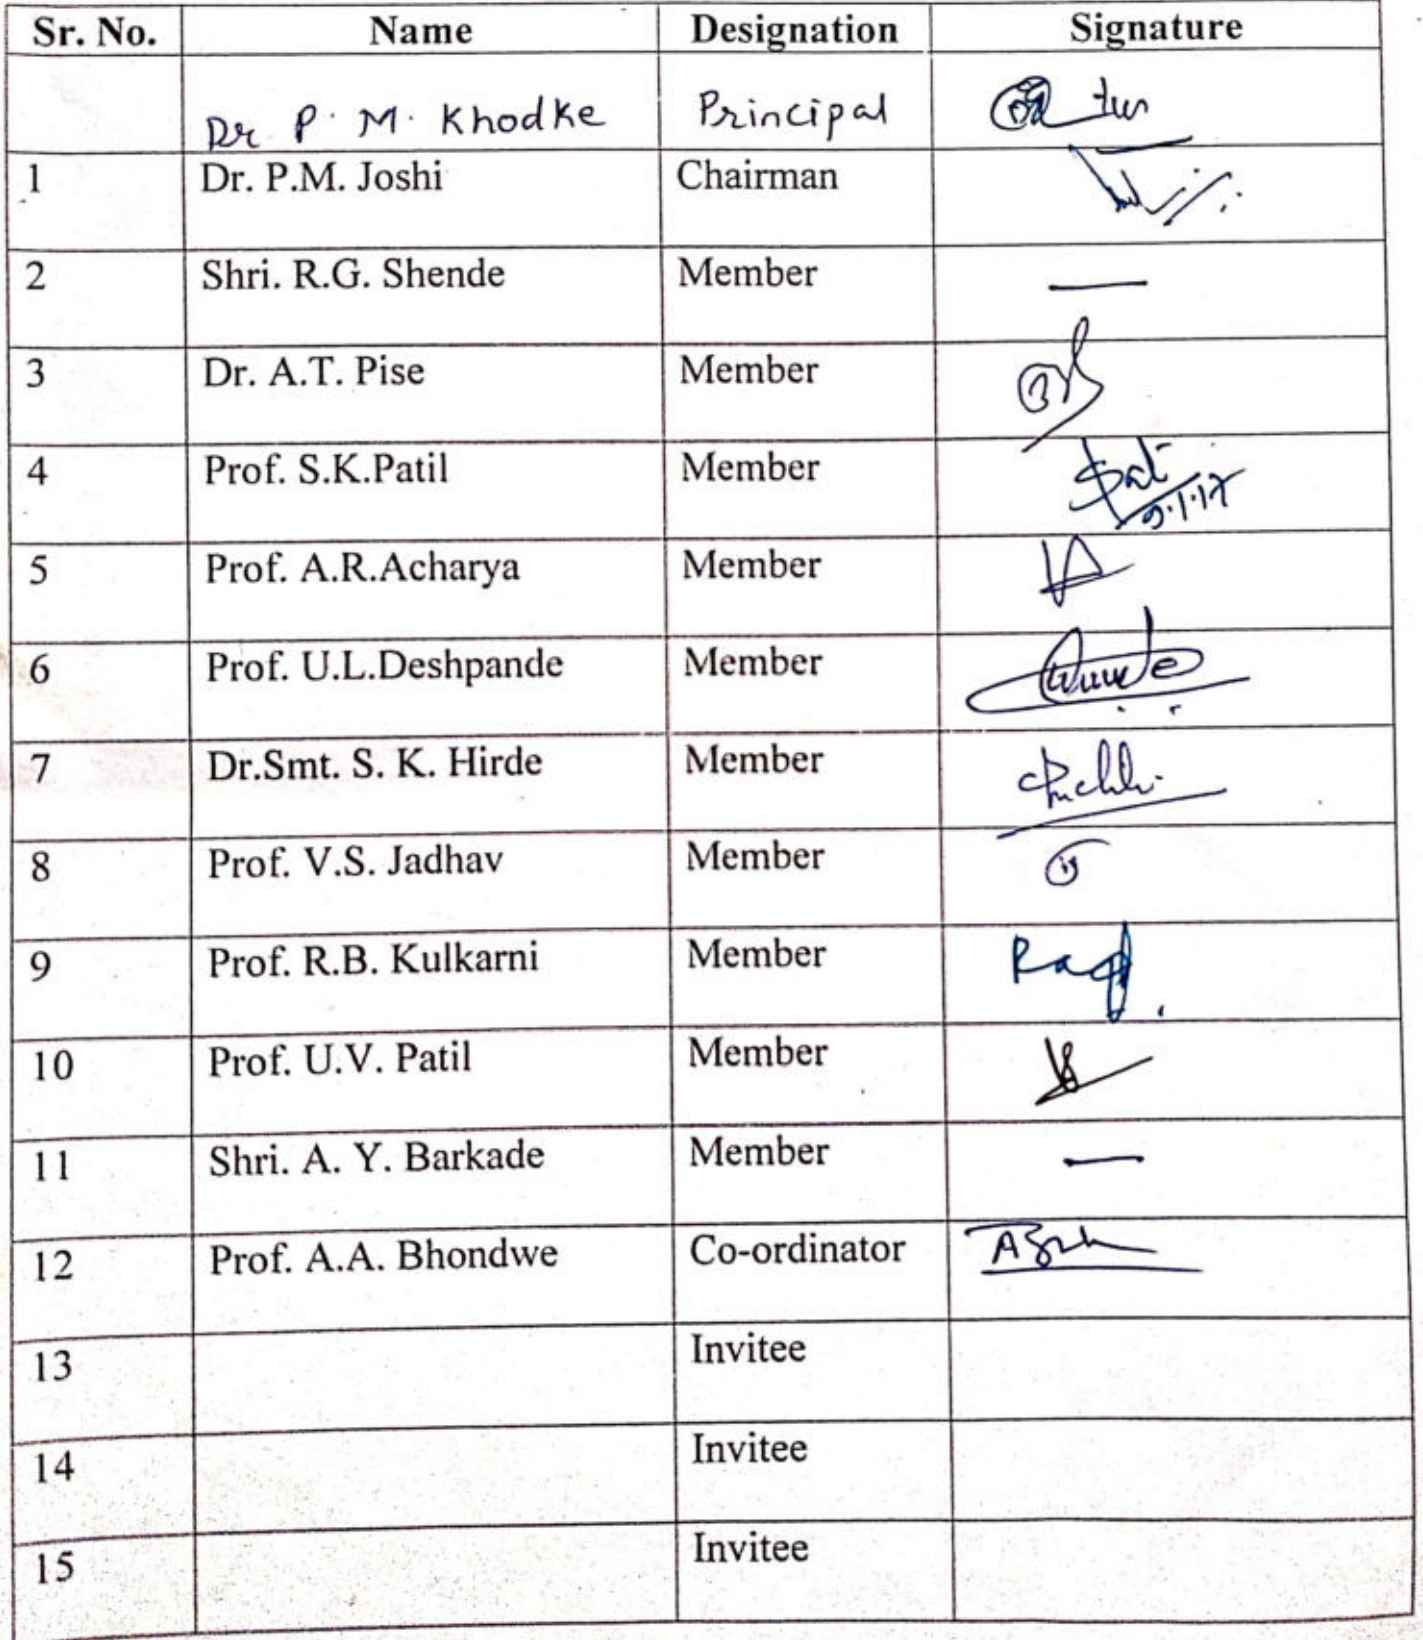 Sr. No. Name Designation Signature
Dr P. M. Khodke Principal
1 Dr. P.M. Joshi Chairman
2 Shri. R.G. Shende Member —
3 Dr. A.T. Pise Member
4 Prof. S.K.Patil Member
9.1.17
5 Prof. A.R.Acharya Member
6 Prof. U.L.Deshpande Member
7 Dr.Smt. S. K. Hirde Member
8 Prof. V.S. Jadhav Member
9 Prof. R.B. Kulkarni Member
10 Prof. U.V. Patil Member
11 Shri. A. Y. Barkade Member —
12 Prof. A.A. Bhondwe Co-ordinator
13 Invitee
14 Invitee
15 Invitee